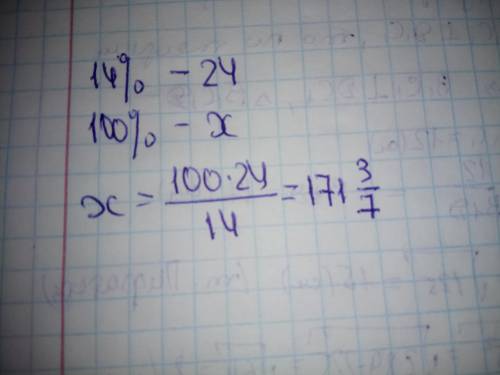 14% - 24
100% - x
x = \frac{100 \cdot 24}{14} = 171 \frac{3}{7}